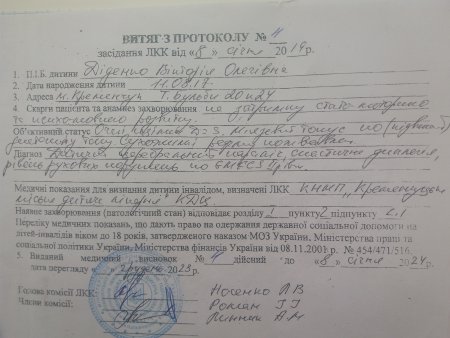 ВИТЯГ З ПРОТОКОЛУ № 4
засідання ЛКК від «8» січня 2019р.
1. П.І.Б. дитини Діденко Вікторія Олегівна
2. Дата народження дитини 11.08.17.
3. Адреса м. Кременчук
4. Скарги пацієнта та анамнез захворювання на затримку стато-моторного
та психо-мовного розвитку.
Об'єктивний статус Очні щілини D=S. М'язевий тонус
тонусу. Сухожилкові
Діагноз Дитячий церебральний параліч, спастична диплегія,
рівень рухових порушень по GMFCS
Медичні показання для визнання дитини інвалідом, визначені ЛКК КНМП „Кременчуцька
міська дитяча лікарня" КДКЦ
Наявне захворювання (патологічний стан) відповідає розділу 2 пункту 2 підпункту 2.1
Переліку медичних показань, що дають право на одержання державної соціальної допомоги на
дітей-інвалідів віком до 18 років, затвердженого наказом МОЗ України, Міністерства праці та
соціальної політики України, Міністерства фінансів України від 08.11.2001р. № 454/471/516.
5. Виданий медичний висновок № 4 дійсний до «8» січня 2024р.
дата перегляду « » грудень 2023р.
Голова комісії ЛКК: Носенко Л В
Члени комісії: Роман Г
А М